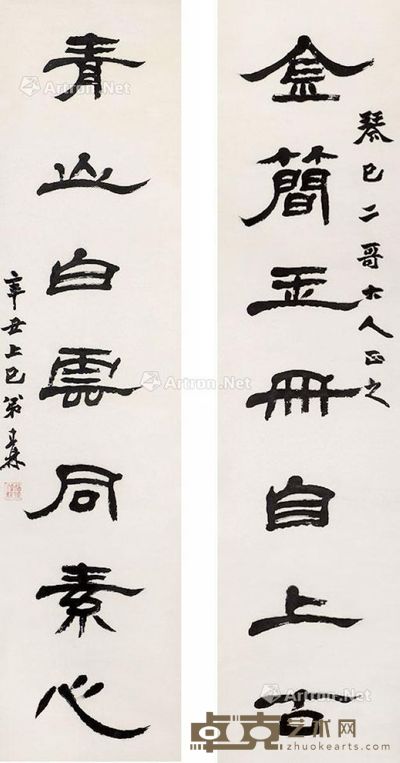 琴巳二哥大人正之
金簡玉冊自上古
青山白雲同素心
辛丑上巳弟
Artron.Net
Artron.Net
Artron.Net
Artron.Net
卓克艺术网
zhuokearts.com